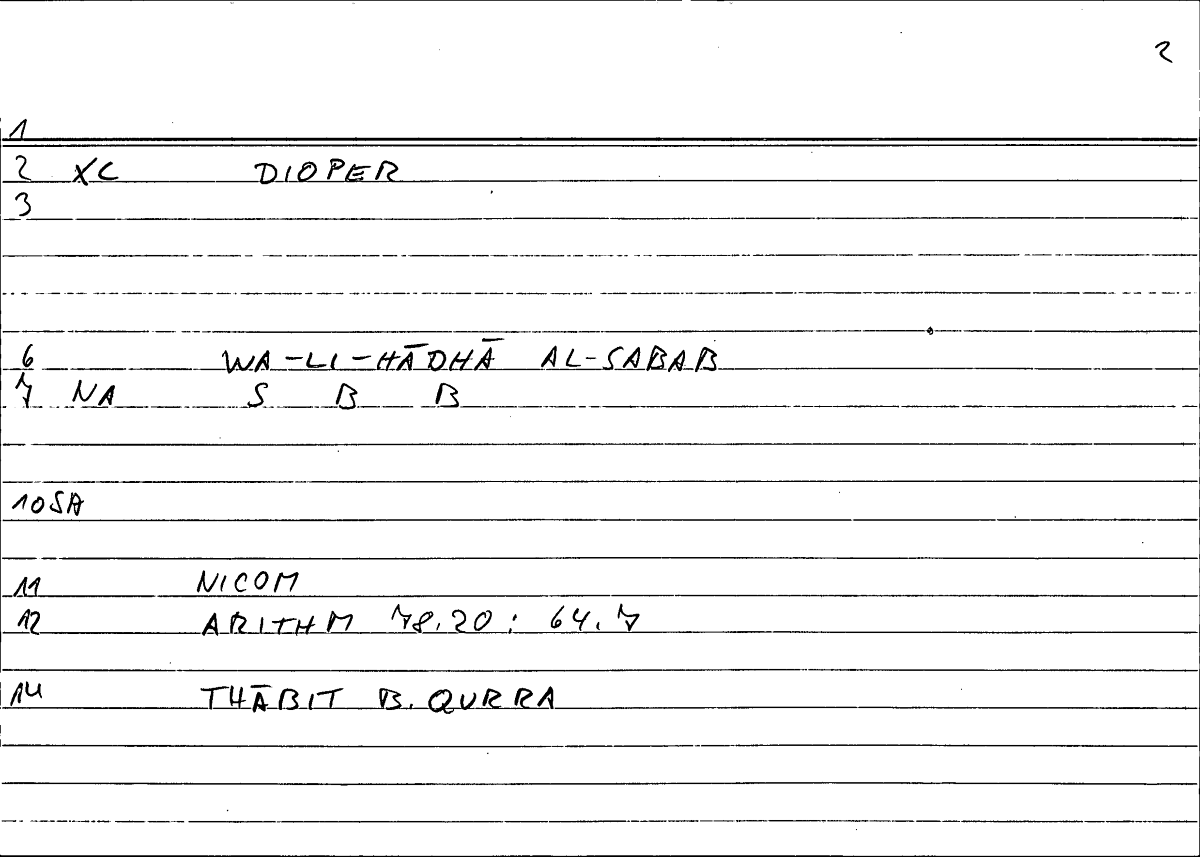 2
1
2 XC DIOPER
3
6 WA-LI-HĀDHĀ AL-SABAB
7 NA S B B
10 SA
11 NICOM
12 ARITHM 78.20 : 64.7
14 THĀBIT B. QURRA